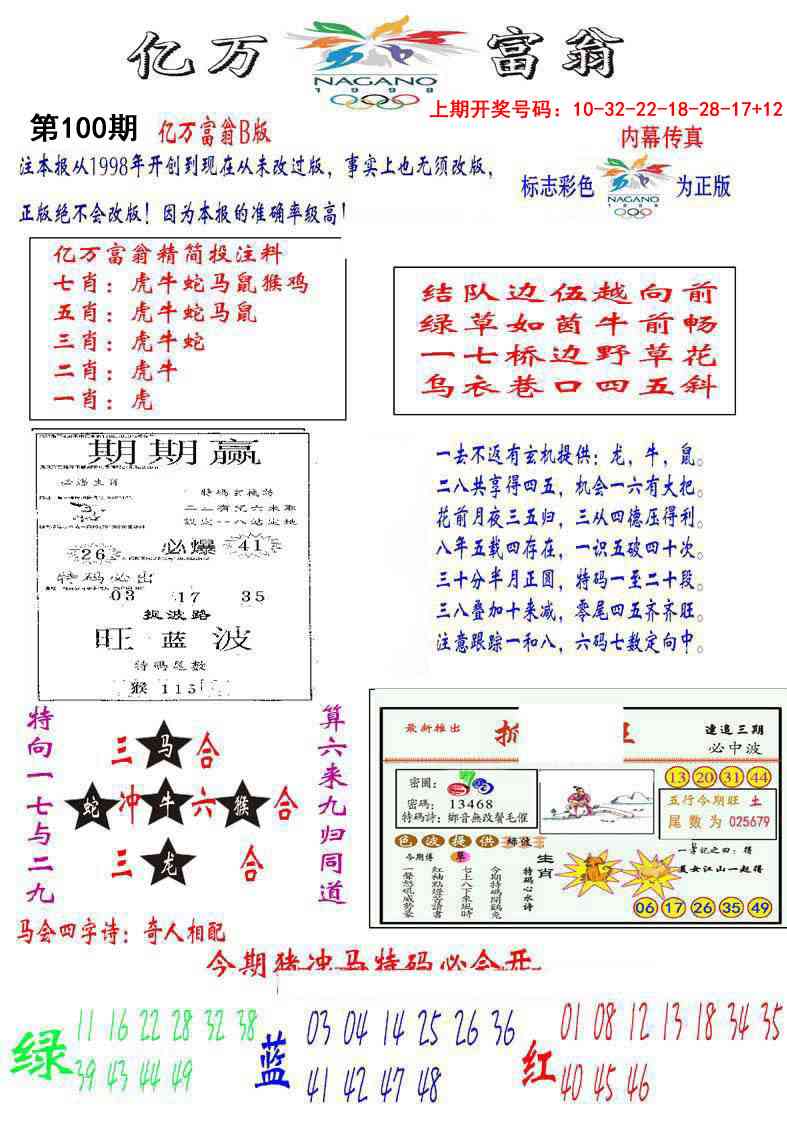 亿万富翁
NAGANO
1998
上期开奖号码：10-32-22-18-28-17+12
第100期 亿万富翁B版
内幕传真
注本报从1998年开创到现在从未改过版，事实上也无须改版，
标志彩色
NAGANO
为正版
正版绝不会改版！因为本报的准确率级高！
亿万富翁精简投注料
七肖：虎牛蛇马鼠猴鸡
五肖：虎牛蛇马鼠
三肖：虎牛蛇
二肖：虎牛
一肖：虎
结队边伍越向前
绿草如茵牛前畅
一七桥边野草花
乌衣巷口四五斜
期期赢
必爆
26
41
特码必出
03 17 35
捉波路
旺蓝波
特码总数
猴 115
一去不返有玄机提供：龙，牛，鼠。
二八共享得四五，机会一六有大把。
花前月夜三五归，三从四德压得利。
八年五载四存在，一识五破四十次。
三十分半月正圆，特码一至二十段。
三八叠加十来减，零尾四五齐齐旺。
注意跟踪一和八，六码七数定向中。
特向一七与二九
三马合
蛇冲牛六猴合
三龙合
算六来九归同道
最新推出
速追三期
必中波
密圖：
密碼：13468
特碼詩：鄉音無改鬢毛催
13 20 31 44
五行今期旺 土
尾数为 025679
色波提供 綠波
今期傅
草
一聲怒吼威勢豪
紅袖點燈苦讀書
七上八下來風時
今期特碼開鷄兔
特碼心水诗
生肖
一筆记之曰：得
美女江山一起得
06 17 26 35 49
马会四字诗：奇人相配
今期猪冲马特码必会开
绿
11 16 22 28 32 38
39 43 44 49
蓝
03 04 14 25 26 36
41 42 47 48
红
01 08 12 13 18 34 35
40 45 46